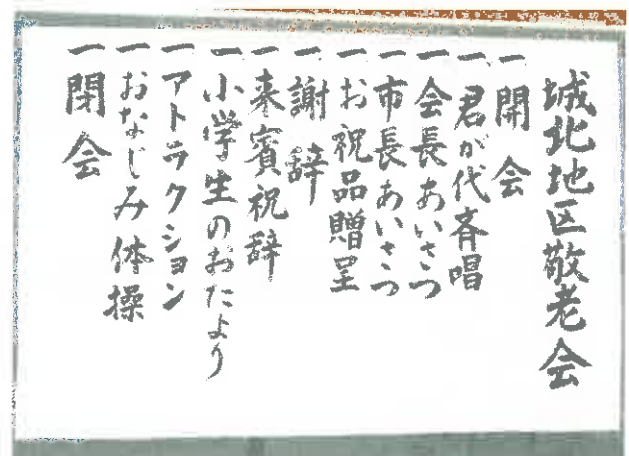 城北地区敬老会
一開会
一君が代斉唱
一会長あいさつ
一市長あいさつ
一お祝品贈呈
一謝辞
一来賓祝辞
一小学生のおたより
一アトラクション
一おなじみ体操
一閉会